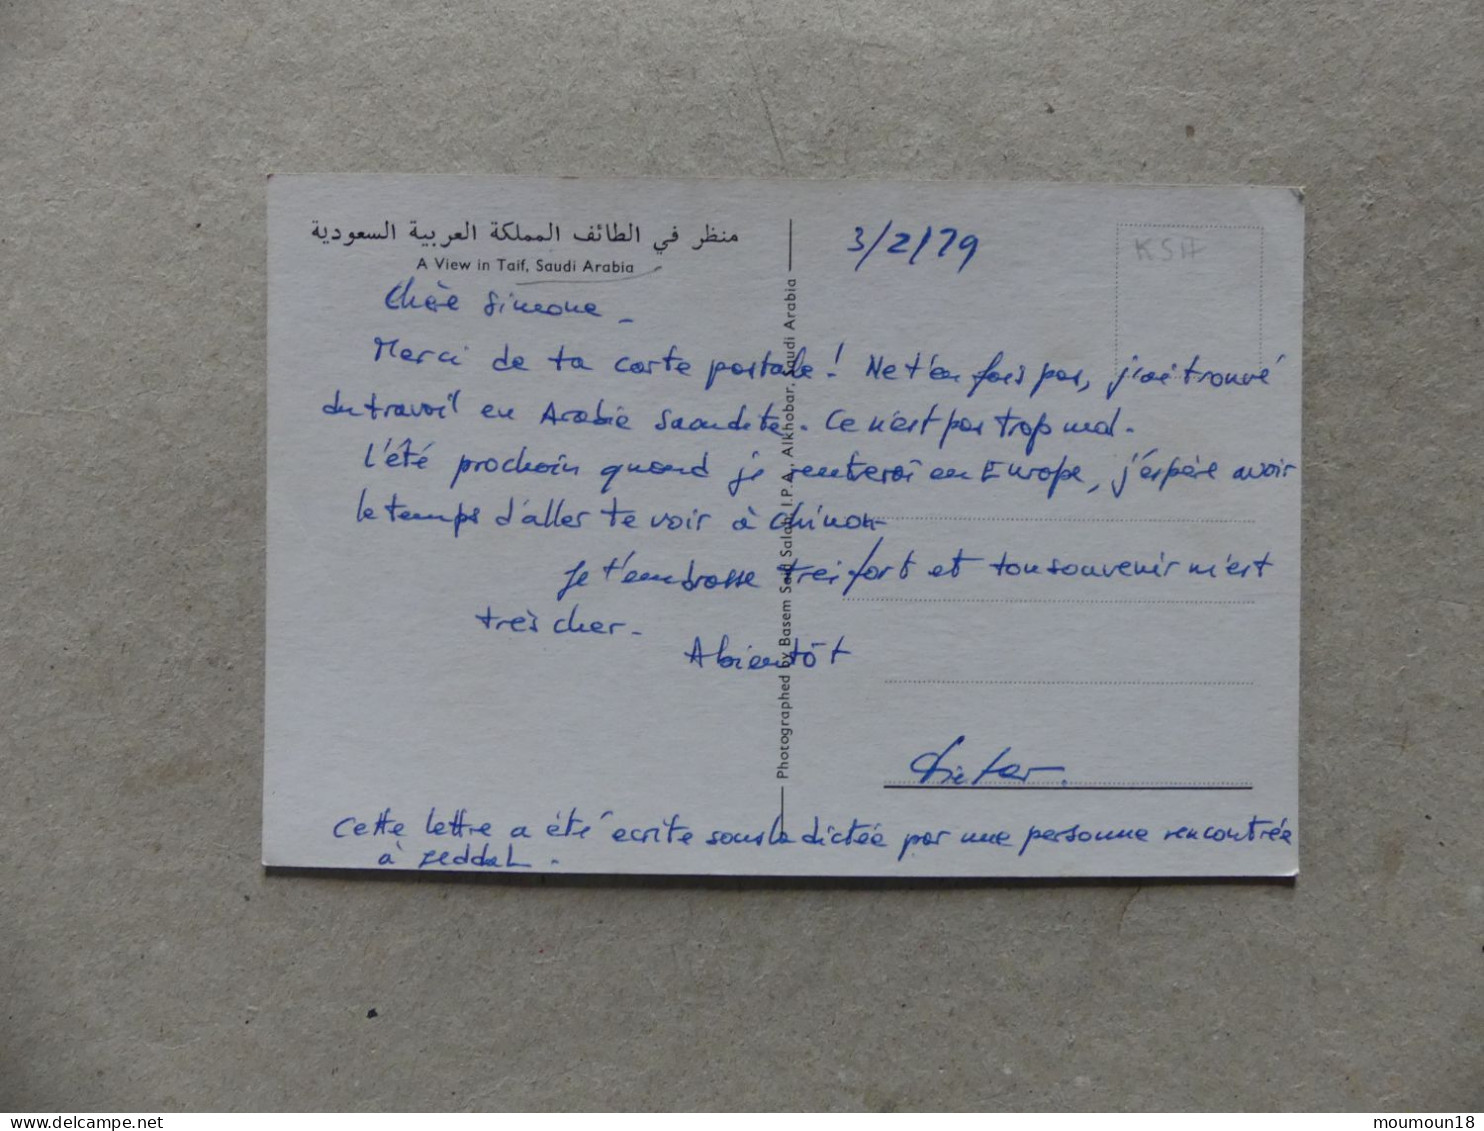 منظر في الطائف المملكة العربية السعودية
A View in Taif, Saudi Arabia
3/2/79
KSA
Chère Simone -
Merci de ta carte postale ! Ne t'en fais pas, j'ai trouvé
du travail en Arabie Saoudite. Ce n'est pas trop mal.
L'été prochain quand je rentrerai en Europe, j'espère avoir
le temps d'aller te voir à Chinon
Je t'embrasse très fort et ton souvenir m'est
très cher.
A bientôt
Dieter.
Cette lettre a été écrite sous la dictée par une personne rencontrée
à Jeddah.
Photographed by Basem Said Salam, I.P.A., Alkhobar, Saudi Arabia
moumoun18